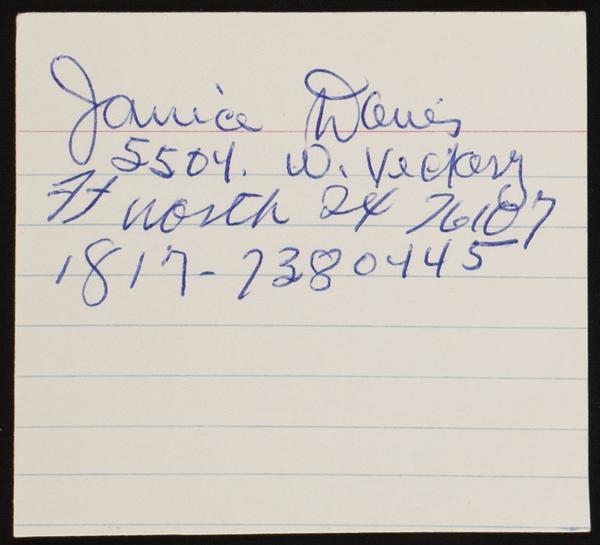 Janice Davis
5504. W. Vickery
Ft Worth 24 76107
1817-7380445